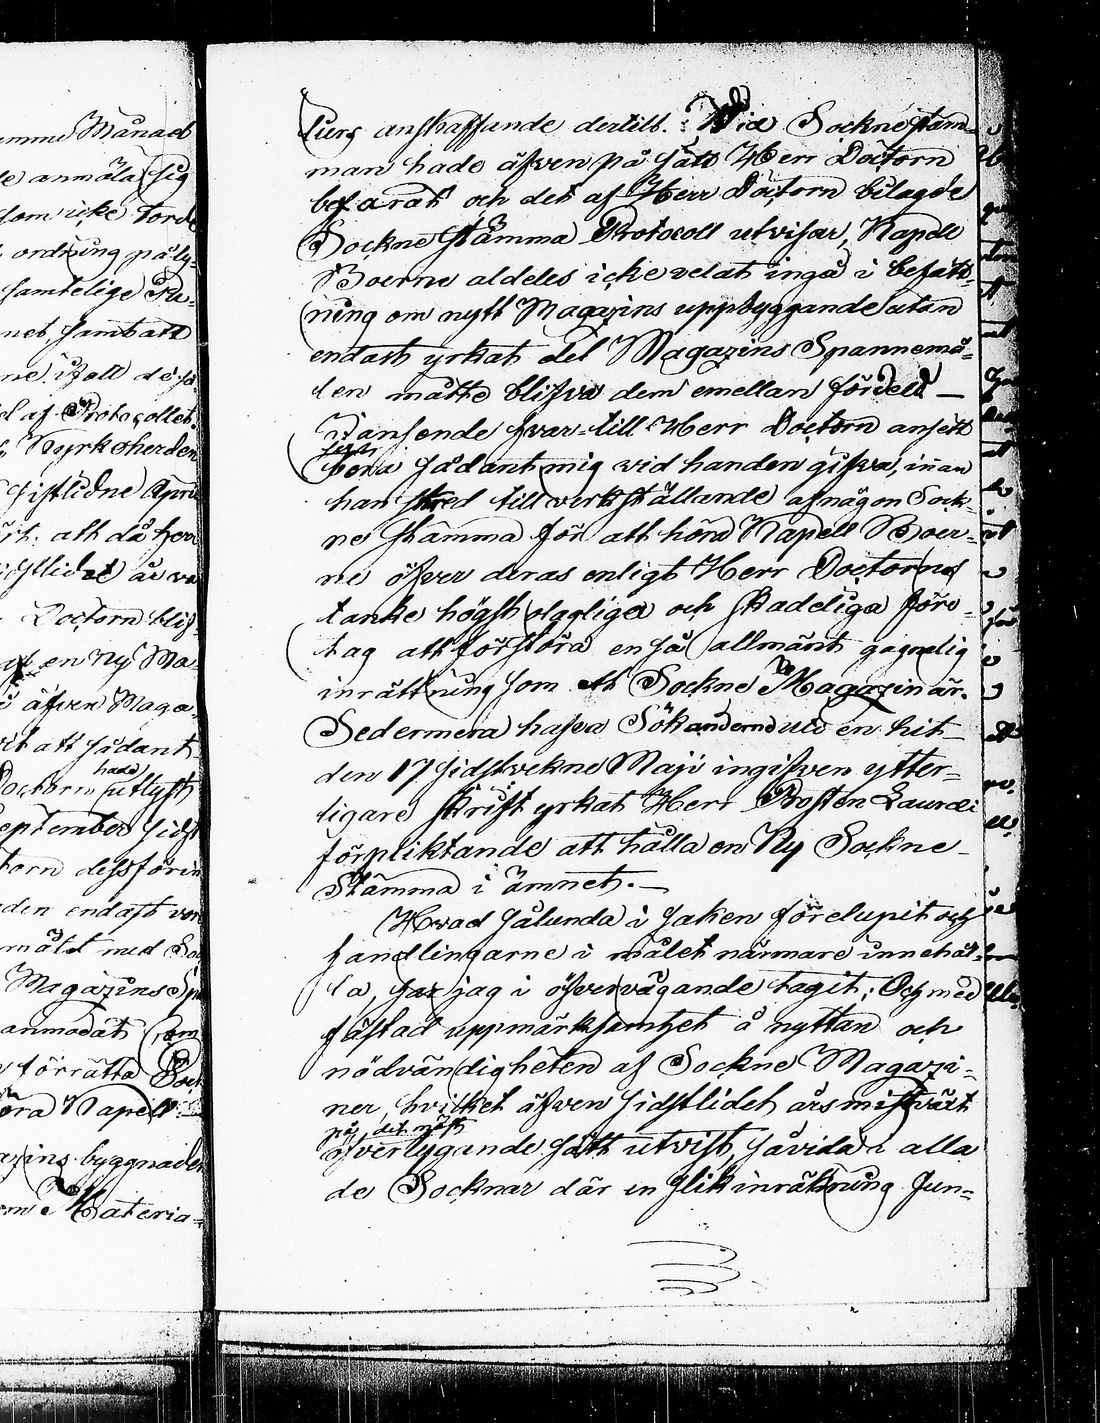 amme Månad
anmäla sig
som icke torde
ordning påly-
samtelige
net, samt att
af Protocollet
Kyrkoherden
sistlidne April
att då herr
sistlidet år
Doctorn blif-
en Ny Ma-
äfven Maga-
att sådant
Doctorn hade utlyst
September sidst
torn dessförin
den endast
målet med
Magazins
anmodat som
förrätta
Kapell
azins byggnaden
Materia-
liers anskaffande dertill. Vid Sockne stäm-
man hade äfven på sätt Herr Doctorn
befarat och det af Herr Doctorn bilagde
Sockne Stämma Protocoll utvisar, Kapell
Boerne aldeles icke velat ingå i befatt-
ning om nytt Magazins uppbyggande utan
endast yrkat det Magazins Spannemå-
len måtte blifva dem emellan fördeld —
Tjänsende svar till Herr Doctorn ansett
jag
böra sådant mig vid handen gifva, innan
han skred till verkställande af någon Sock-
ne stämma för att höra Kapell Boer-
ne öfver deras enligt Herr Doctorns
tanke högst olagliga och skadeliga före-
tag att förstöra en så allmänt gagnelig
inrättning som ett Sockne Magazin är.
Sedermera hafva Sökanderne uti en hit
den 17 sidstvekne Maji ingifven ytter-
ligare skrift yrkat Herr Prosten Lauræi
förpliktande att hålla en Ny Sockne
Stämma i ämnet. —
Hvad sålunda i saken förelupit och
handlingarne i målet närmare innehål-
la, har jag i öfvervägande tagit; Och med
fästad uppmärksamhet å nyttan och
nödvändigheten af Sockne Magazi-
ner, hvilket äfven sidstlidet års missvärt
på det mäst
öfverlygande sätt utvist, såvida i alla
de Socknar där en slik inrättning fun-